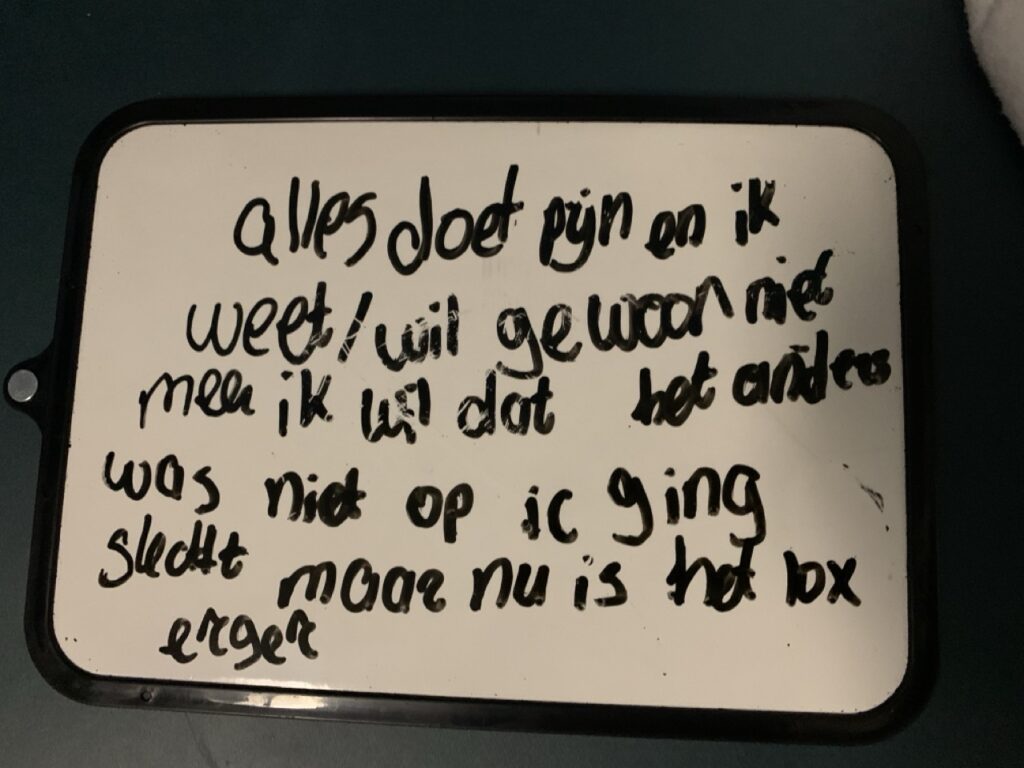 alles doet pijn en ik
weet/wil gewoon niet
meer ik wil dat het anders
was niet op ic ging
slecht maar nu is het 10x
erger